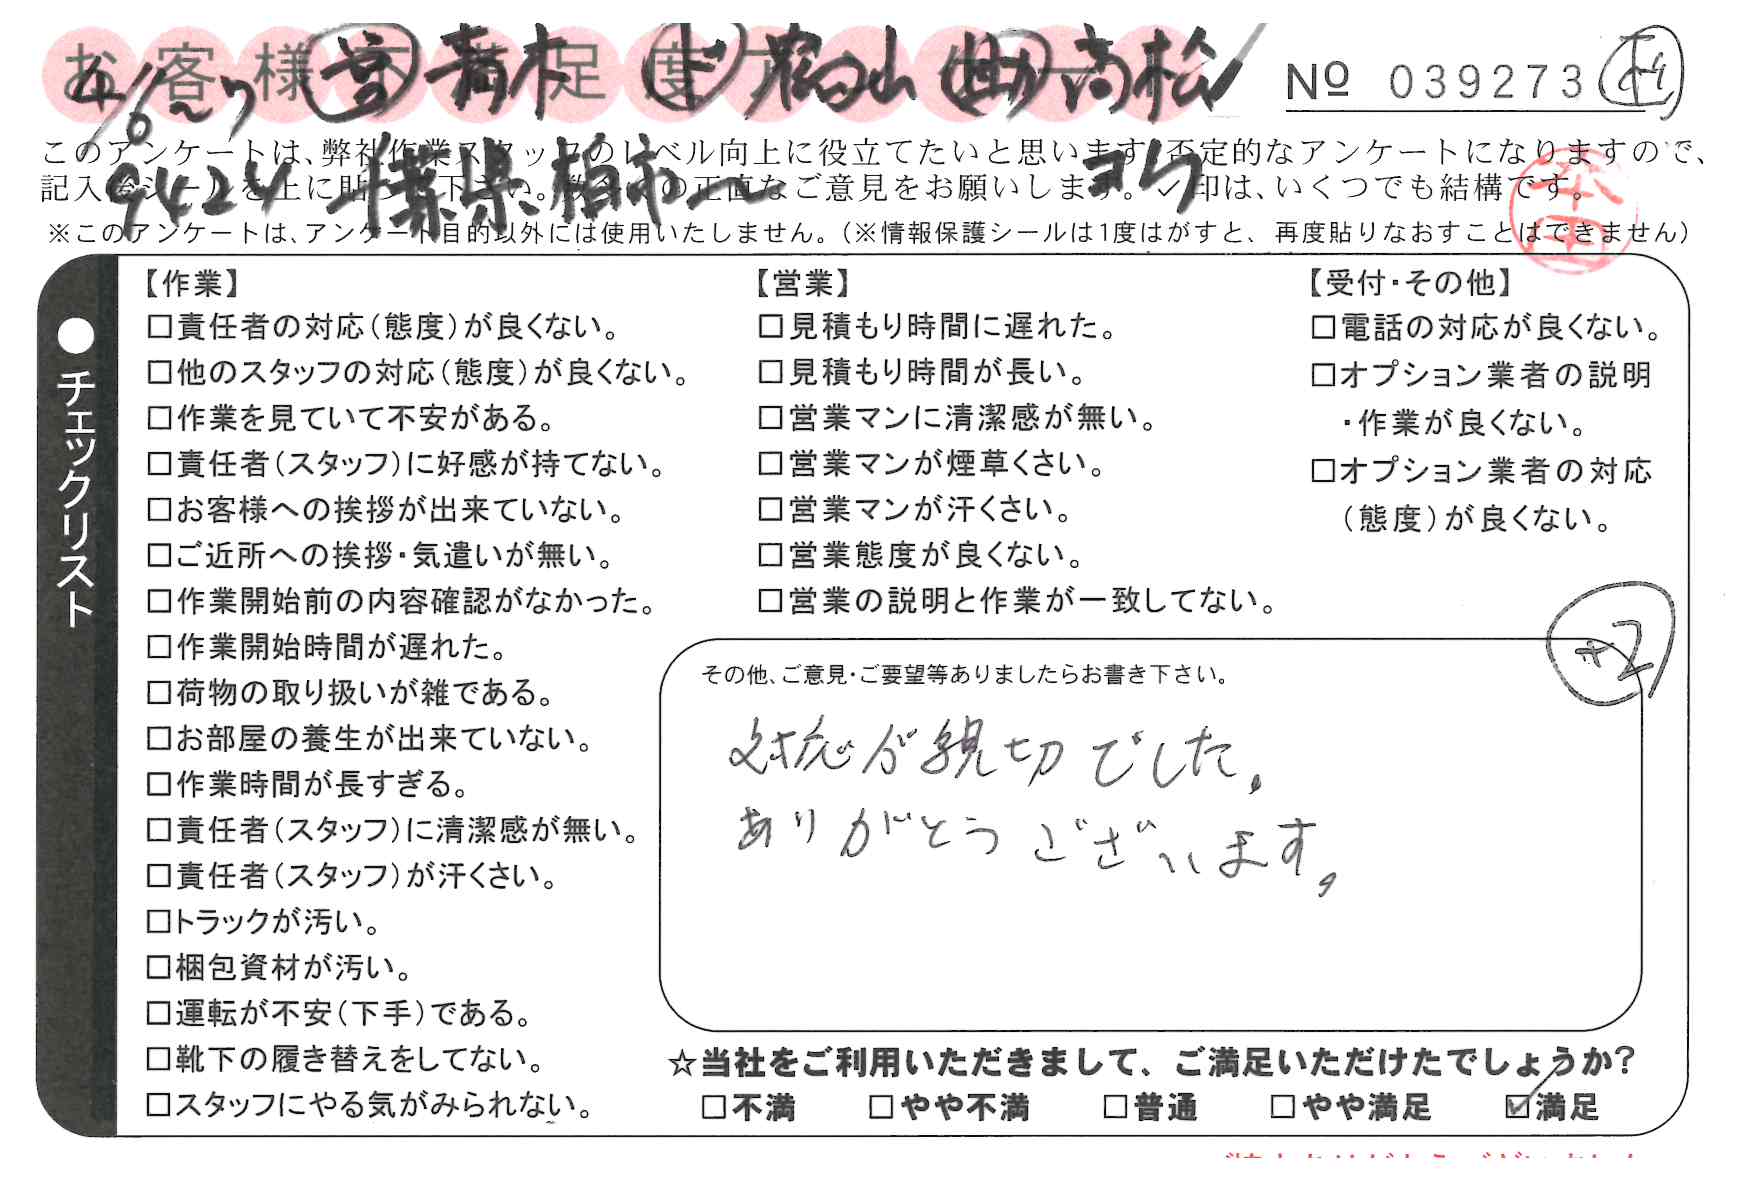 お客様不満足度アンケート
4/6〜7 ㊂青木 ㋣富山 助高松
No 039273
このアンケートは、弊社作業スタッフのレベル向上に役立てたいと思います。否定的なアンケートになりますので、
記入後シールを上に貼って下さい。数多くの正直なご意見をお願いします。✓印は、いくつでも結構です。
9424 千葉県柏市〜 ヨク
本田
※このアンケートは、アンケート目的以外には使用いたしません。（※情報保護シールは1度はがすと、再度貼りなおすことはできません）
●チェックリスト
【作業】
□責任者の対応（態度）が良くない。
□他のスタッフの対応（態度）が良くない。
□作業を見ていて不安がある。
□責任者（スタッフ）に好感が持てない。
□お客様への挨拶が出来ていない。
□ご近所への挨拶・気遣いが無い。
□作業開始前の内容確認がなかった。
□作業開始時間が遅れた。
□荷物の取り扱いが雑である。
□お部屋の養生が出来ていない。
□作業時間が長すぎる。
□責任者（スタッフ）に清潔感が無い。
□責任者（スタッフ）が汗くさい。
□トラックが汚い。
□梱包資材が汚い。
□運転が不安（下手）である。
□靴下の履き替えをしてない。
□スタッフにやる気がみられない。
【営業】
□見積もり時間に遅れた。
□見積もり時間が長い。
□営業マンに清潔感が無い。
□営業マンが煙草くさい。
□営業マンが汗くさい。
□営業態度が良くない。
□営業の説明と作業が一致してない。
【受付・その他】
□電話の対応が良くない。
□オプション業者の説明
・作業が良くない。
□オプション業者の対応
（態度）が良くない。
+2
その他、ご意見・ご要望等ありましたらお書き下さい。
対応が親切でした。
ありがとうございます。
☆当社をご利用いただきまして、ご満足いただけたでしょうか?
□不満 □やや不満 □普通 □やや満足 ☑満足